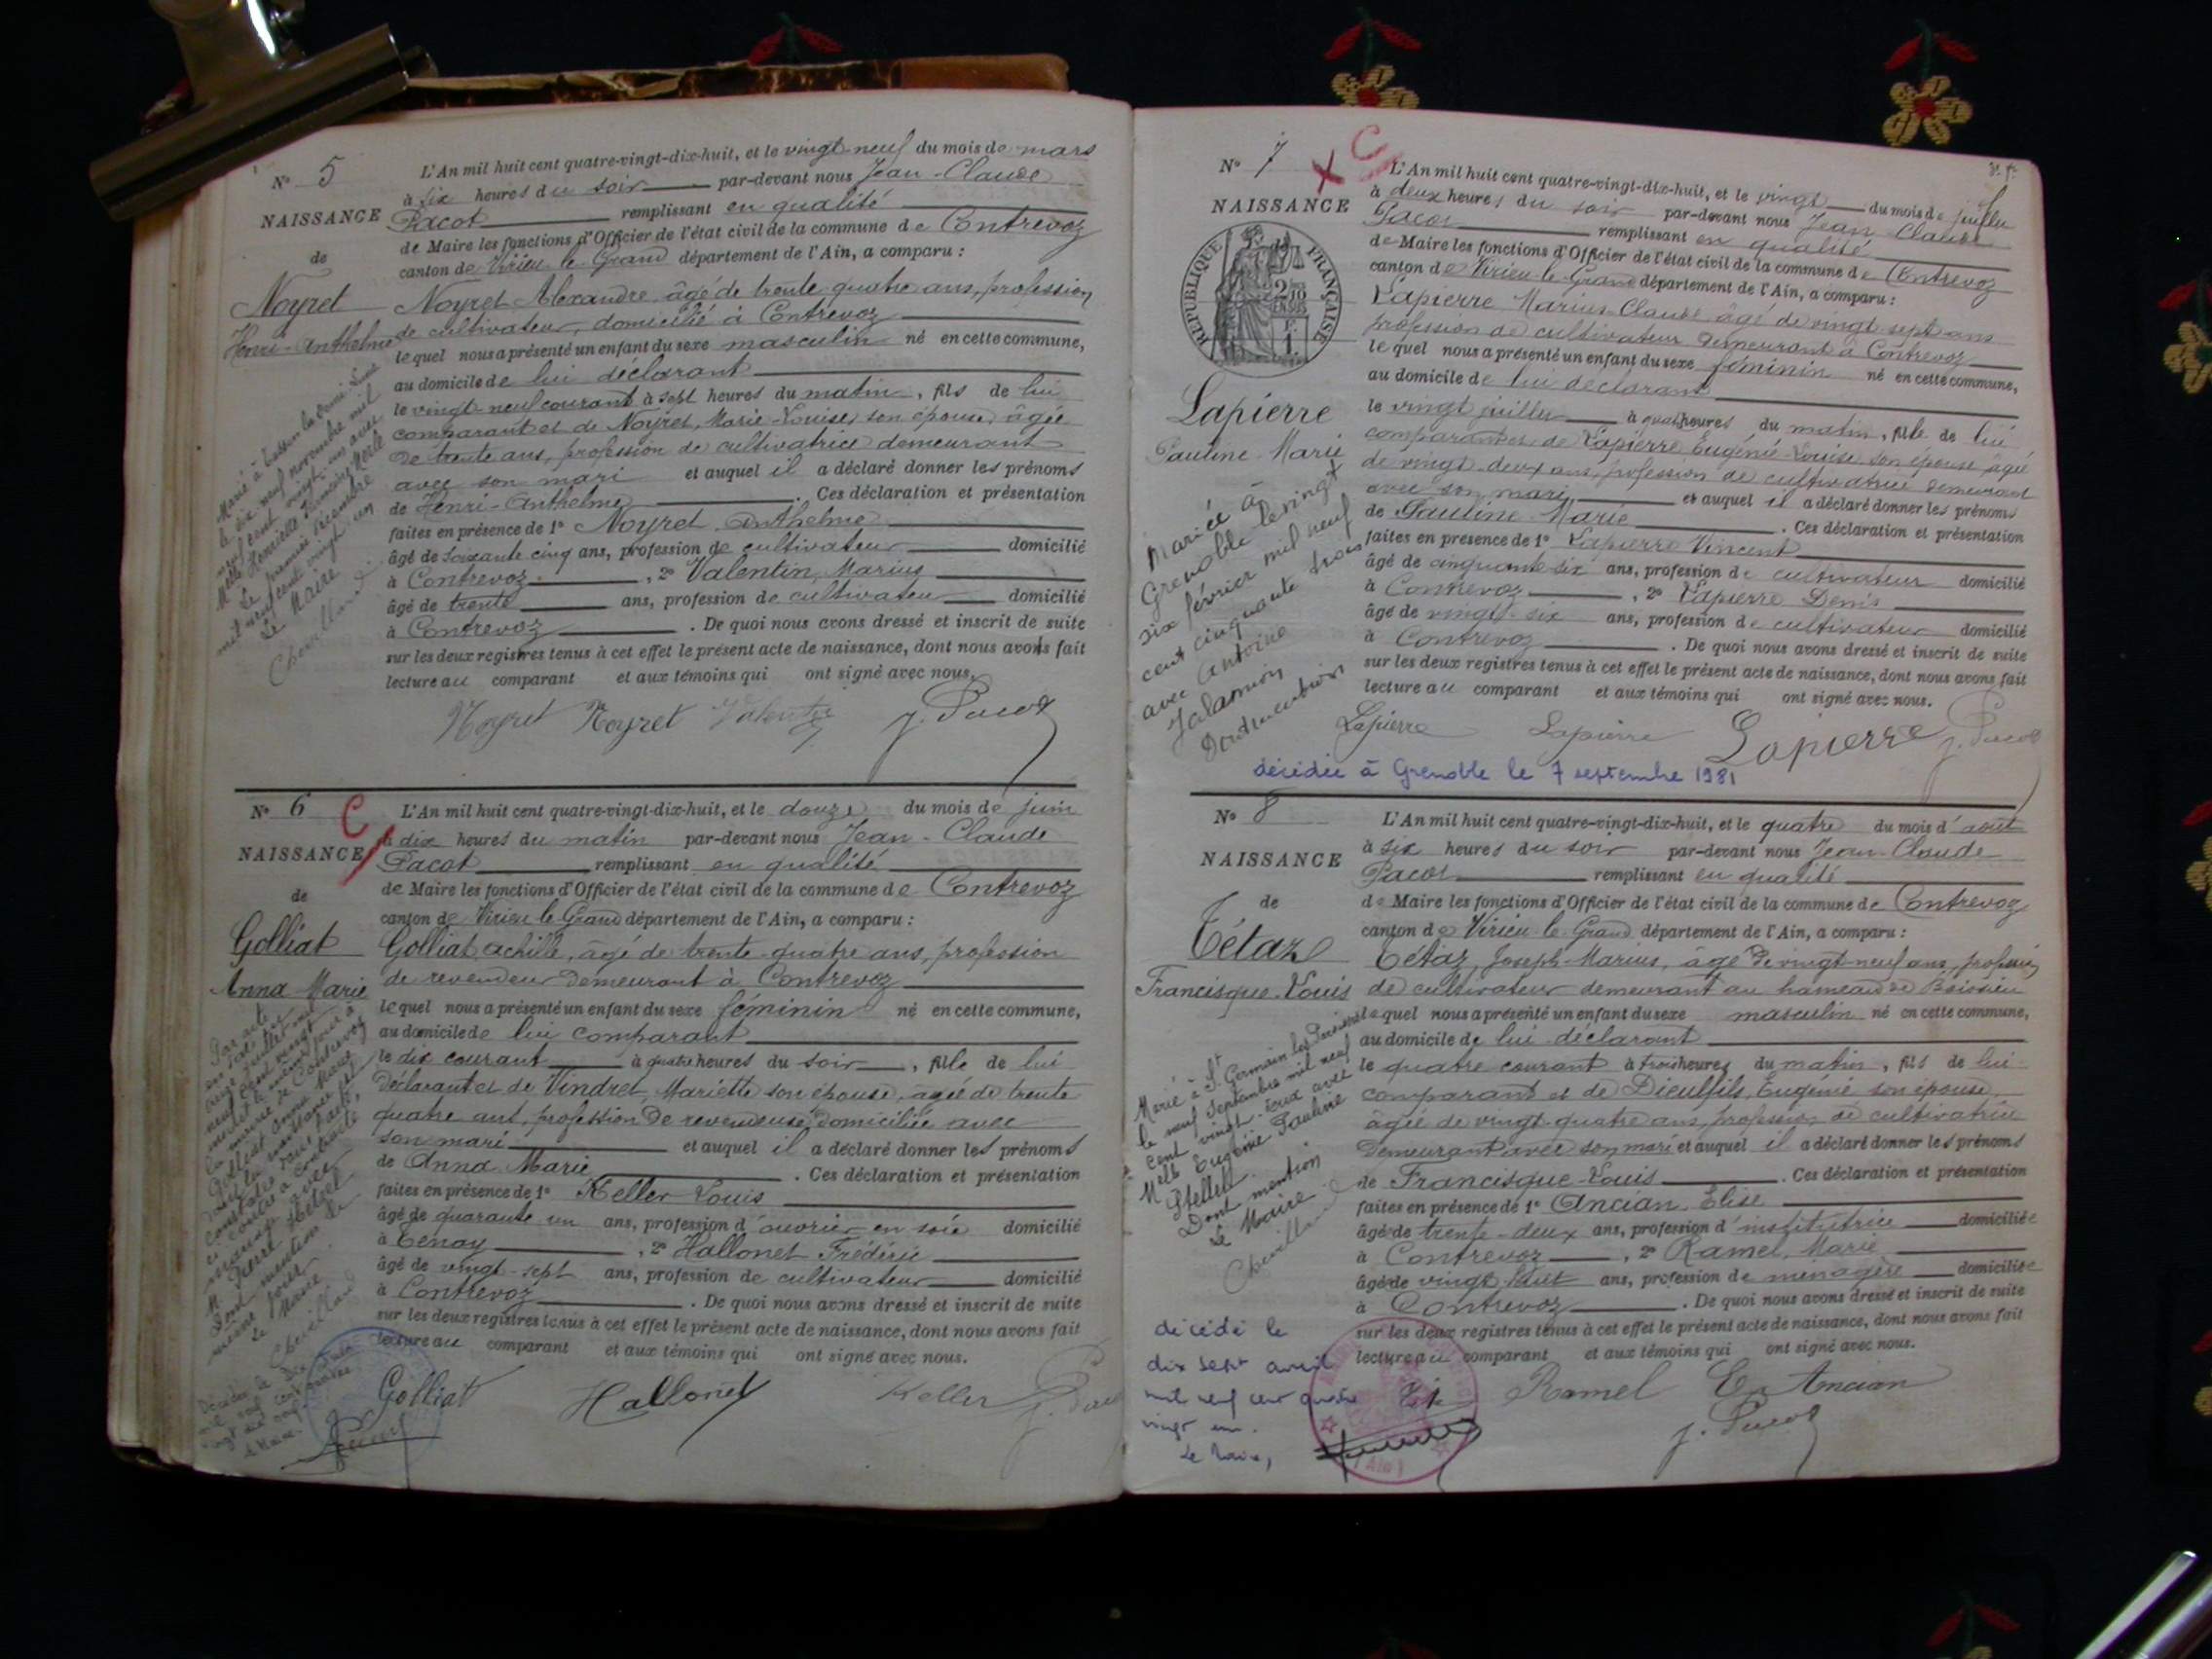 N° 5
L'An mil huit cent quatre-vingt-dix-huit, et le vingt-neuf du mois de mars
à six heures du soir par-devant nous Jean-Claude
NAISSANCE
Pacot remplissant en qualité
de Maire les fonctions d'Officier de l'état civil de la commune de Contrevoz
de
canton de Virieu-le-Grand département de l'Ain, a comparu :
Noyret
Noyret Alexandre, âgé de trente quatre ans, profession
Henri-Anthelme
de cultivateur, domicilié à Contrevoz
lequel nous a présenté un enfant du sexe masculin né en cette commune,
au domicile de lui déclarant
le vingt-neuf courant à sept heures du matin, fils de lui
comparant et de Noyret, Marie-Louise, son épouse, âgée
de trente ans, profession de cultivatrice demeurant
avec son mari et auquel il a déclaré donner les prénoms
de Henri-Anthelme. Ces déclaration et présentation
faites en présence de 1° Noyret Anthelme
âgé de soixante cinq ans, profession de cultivateur domicilié
à Contrevoz, 2° Valentin, Marius
âgé de trente ans, profession de cultivateur domicilié
à Contrevoz. De quoi nous avons dressé et inscrit de suite
sur les deux registres tenus à cet effet le présent acte de naissance, dont nous avons fait
lecture au comparant et aux témoins qui ont signé avec nous.
Marié à Tassin la Demi-Lune
le dix neuf novembre mil
neuf cent vingt un avec
Melle Henriette
Le premier décembre
mil neuf cent vingt un
Le Maire
Chevillard
Noyret Noyret Valentin J. Pacot
N° 6
C
L'An mil huit cent quatre-vingt-dix-huit, et le douze du mois de juin
à dix heures du matin par-devant nous Jean-Claude
NAISSANCE
Pacot remplissant en qualité
de Maire les fonctions d'Officier de l'état civil de la commune de Contrevoz
de
canton de Virieu-le-Grand département de l'Ain, a comparu :
Golliat
Golliat Achille, âgé de trente-quatre ans, profession
Anna Marie
de revendeur demeurant à Contrevoz
lequel nous a présenté un enfant du sexe féminin né en cette commune,
au domicile de lui comparant
le dix courant à quatre heures du soir, fille de lui
déclarant et de Vindret, Mariette son épouse, âgée de trente
quatre ans, profession de revendeuse, domiciliée avec
son mari et auquel il a déclaré donner les prénoms
de Anna Marie. Ces déclaration et présentation
faites en présence de 1° Keller Louis
âgé de quarante un ans, profession d'ouvrier en soie domicilié
à Tenay, 2° Hallonet Frédéric
âgé de vingt-sept ans, profession de cultivateur domicilié
à Contrevoz. De quoi nous avons dressé et inscrit de suite
sur les deux registres tenus à cet effet le présent acte de naissance, dont nous avons fait
lecture au comparant et aux témoins qui ont signé avec nous.
Par acte
Dont mention
Le Maire
Chevillard
Golliat Hallonet Keller J. Pacot
N° 7
X C
L'An mil huit cent quatre-vingt-dix-huit, et le vingt du mois de juillet
à deux heures du soir par-devant nous Jean Claude
NAISSANCE
Pacot remplissant en qualité
de Maire les fonctions d'Officier de l'état civil de la commune de Contrevoz
canton de Virieu-le-Grand département de l'Ain, a comparu :
REPUBLIQUE FRANÇAISE
2/10 EN SUS
Lapierre Marius Claude âgé de vingt sept ans
profession de cultivateur demeurant à Contrevoz
lequel nous a présenté un enfant du sexe féminin né en cette commune,
au domicile de lui déclarant
Lapierre
Pauline-Marie
le vingt juillet à quatre heures du matin, fille de lui
comparant et de Lapierre Eugénie-Louise son épouse âgée
de vingt-deux ans, profession de cultivatrice demeurant
avec son mari et auquel il a déclaré donner les prénoms
de Pauline-Marie. Ces déclaration et présentation
faites en présence de 1° Lapierre Vincent
âgé de cinquante six ans, profession de cultivateur domicilié
à Contrevoz, 2° Lapierre Denis
âgé de vingt-six ans, profession de cultivateur domicilié
à Contrevoz. De quoi nous avons dressé et inscrit de suite
sur les deux registres tenus à cet effet le présent acte de naissance, dont nous avons fait
lecture au comparant et aux témoins qui ont signé avec nous.
Mariée à
Grenoble le vingt
six février mil neuf
cent cinquante trois
avec Antoine
Jalamion
Dont mention
Lapierre Lapierre Lapierre J. Pacot
décédée à Grenoble le 7 septembre 1981
N° 8
L'An mil huit cent quatre-vingt-dix-huit, et le quatre du mois d'août
à six heures du soir par-devant nous Jean-Claude
NAISSANCE
Pacot remplissant en qualité
de Maire les fonctions d'Officier de l'état civil de la commune de Contrevoz
de
canton de Virieu-le-Grand département de l'Ain, a comparu :
Tétaz
Tétaz, Joseph-Marius, âgé de vingt-neuf ans, profession
Francisque-Louis
de cultivateur demeurant au hameau de Boissieu
lequel nous a présenté un enfant du sexe masculin né en cette commune,
au domicile de lui déclarant
le quatre courant à trois heures du matin, fils de lui
comparant et de Dieulfils, Eugénie son épouse
âgée de vingt-quatre ans, profession de cultivatrice
demeurant avec son mari et auquel il a déclaré donner les prénoms
de Francisque-Louis. Ces déclaration et présentation
faites en présence de 1° Ancian, Elise
âgée de trente-deux ans, profession d'institutrice domiciliée
à Contrevoz, 2° Ramel, Marie
âgée de vingt-huit ans, profession de ménagère domiciliée
à Contrevoz. De quoi nous avons dressé et inscrit de suite
sur les deux registres tenus à cet effet le présent acte de naissance, dont nous avons fait
lecture au comparant et aux témoins qui ont signé avec nous.
Marié à St Germain les Paroisses
le neuf Septembre mil neuf
cent vingt-deux avec
Melle Eugénie Pauline
Dont mention
Le Maire
Chevillard
décédé le
dix sept avril
mil neuf cent quatre
vingt un.
Le Maire,
Ramel E. Ancian
J. Pacot
(Ain)